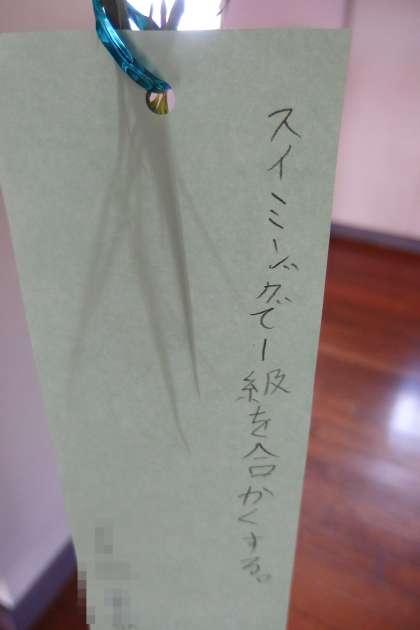 スイミングで1級を合かくする。